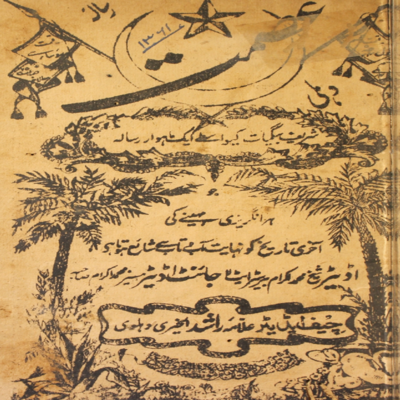 رسالہ
عصمت
۱۳۶۱
دہلی
شریف بیگمات کیواسطے ایک ماہوار رسالہ
جو
ہر انگریزی مہینے کی
آخری تاریخ کو نہایت آب و تاب سے شائع ہوتا ہے
اڈیٹر شیخ محمد اکرام بیرسٹر ایٹ لا جائنٹ اڈیٹر مسز محمد اکرام
چیف ایڈیٹر علامہ راشد الخیری دہلوی